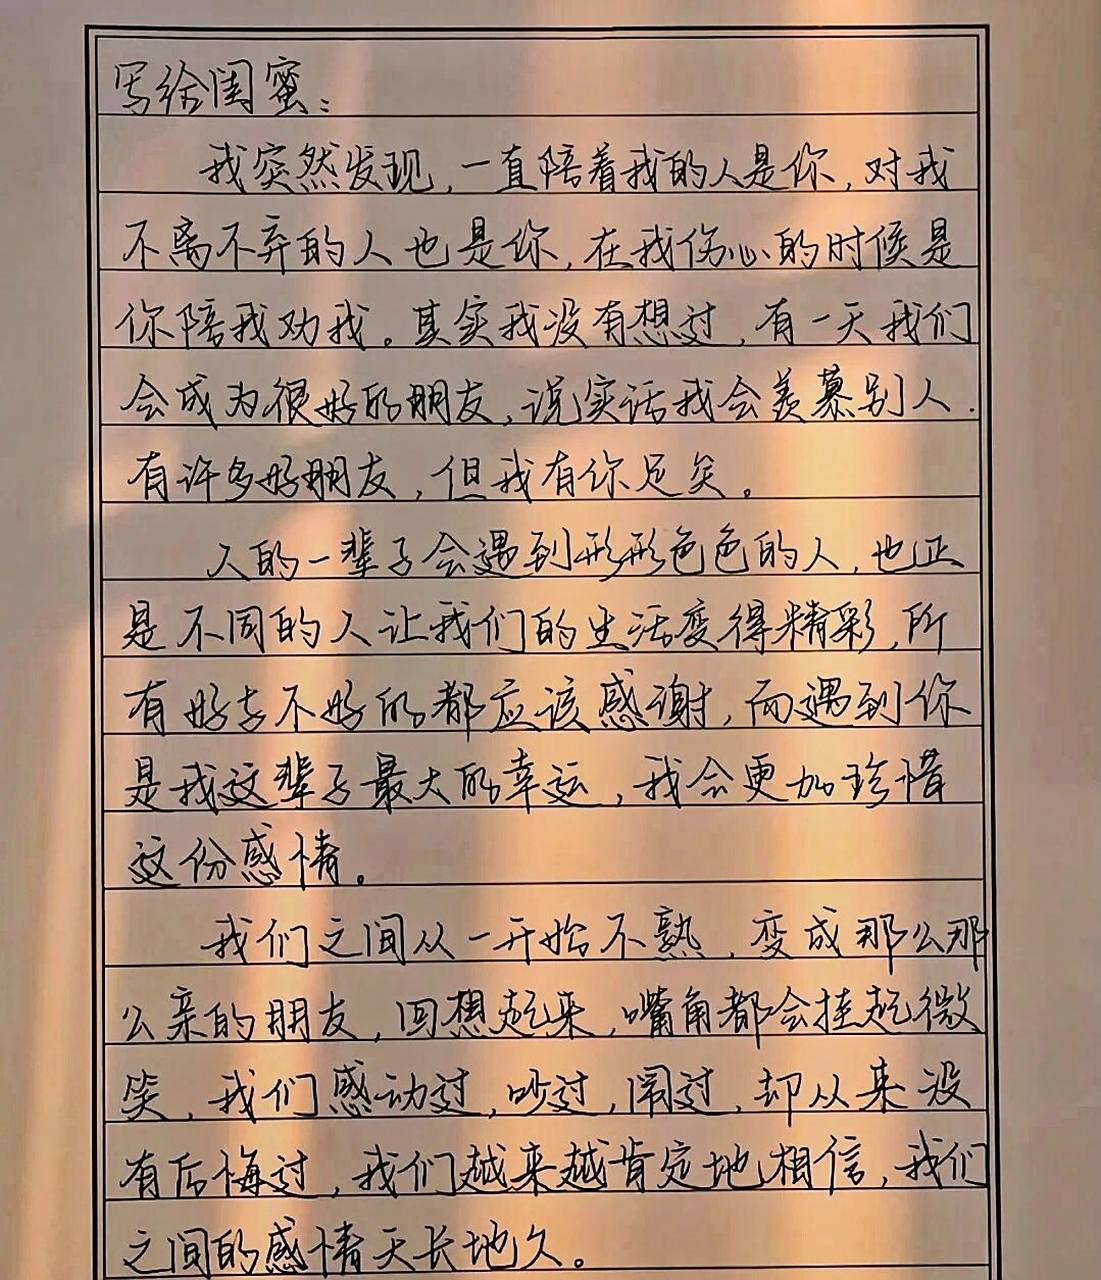 写给闺蜜：
我突然发现，一直陪着我的人是你，对我
不离不弃的人也是你，在我伤心的时候是
你陪我劝我。其实我没有想过，有一天我们
会成为很好的朋友，说实话我会羡慕别人.
有许多好朋友，但我有你足矣。
人的一辈子会遇到形形色色的人，也正
是不同的人让我们的生活变得精彩，所
有好与不好的都应该感谢，而遇到你
是我这辈子最大的幸运，我会更加珍惜
这份感情。
我们之间从一开始不熟，变成那么那
么亲的朋友，回想起来，嘴角都会挂起微
笑，我们感动过，吵过，闹过，却从来没
有后悔过，我们越来越肯定地相信，我们
之间的感情天长地久。